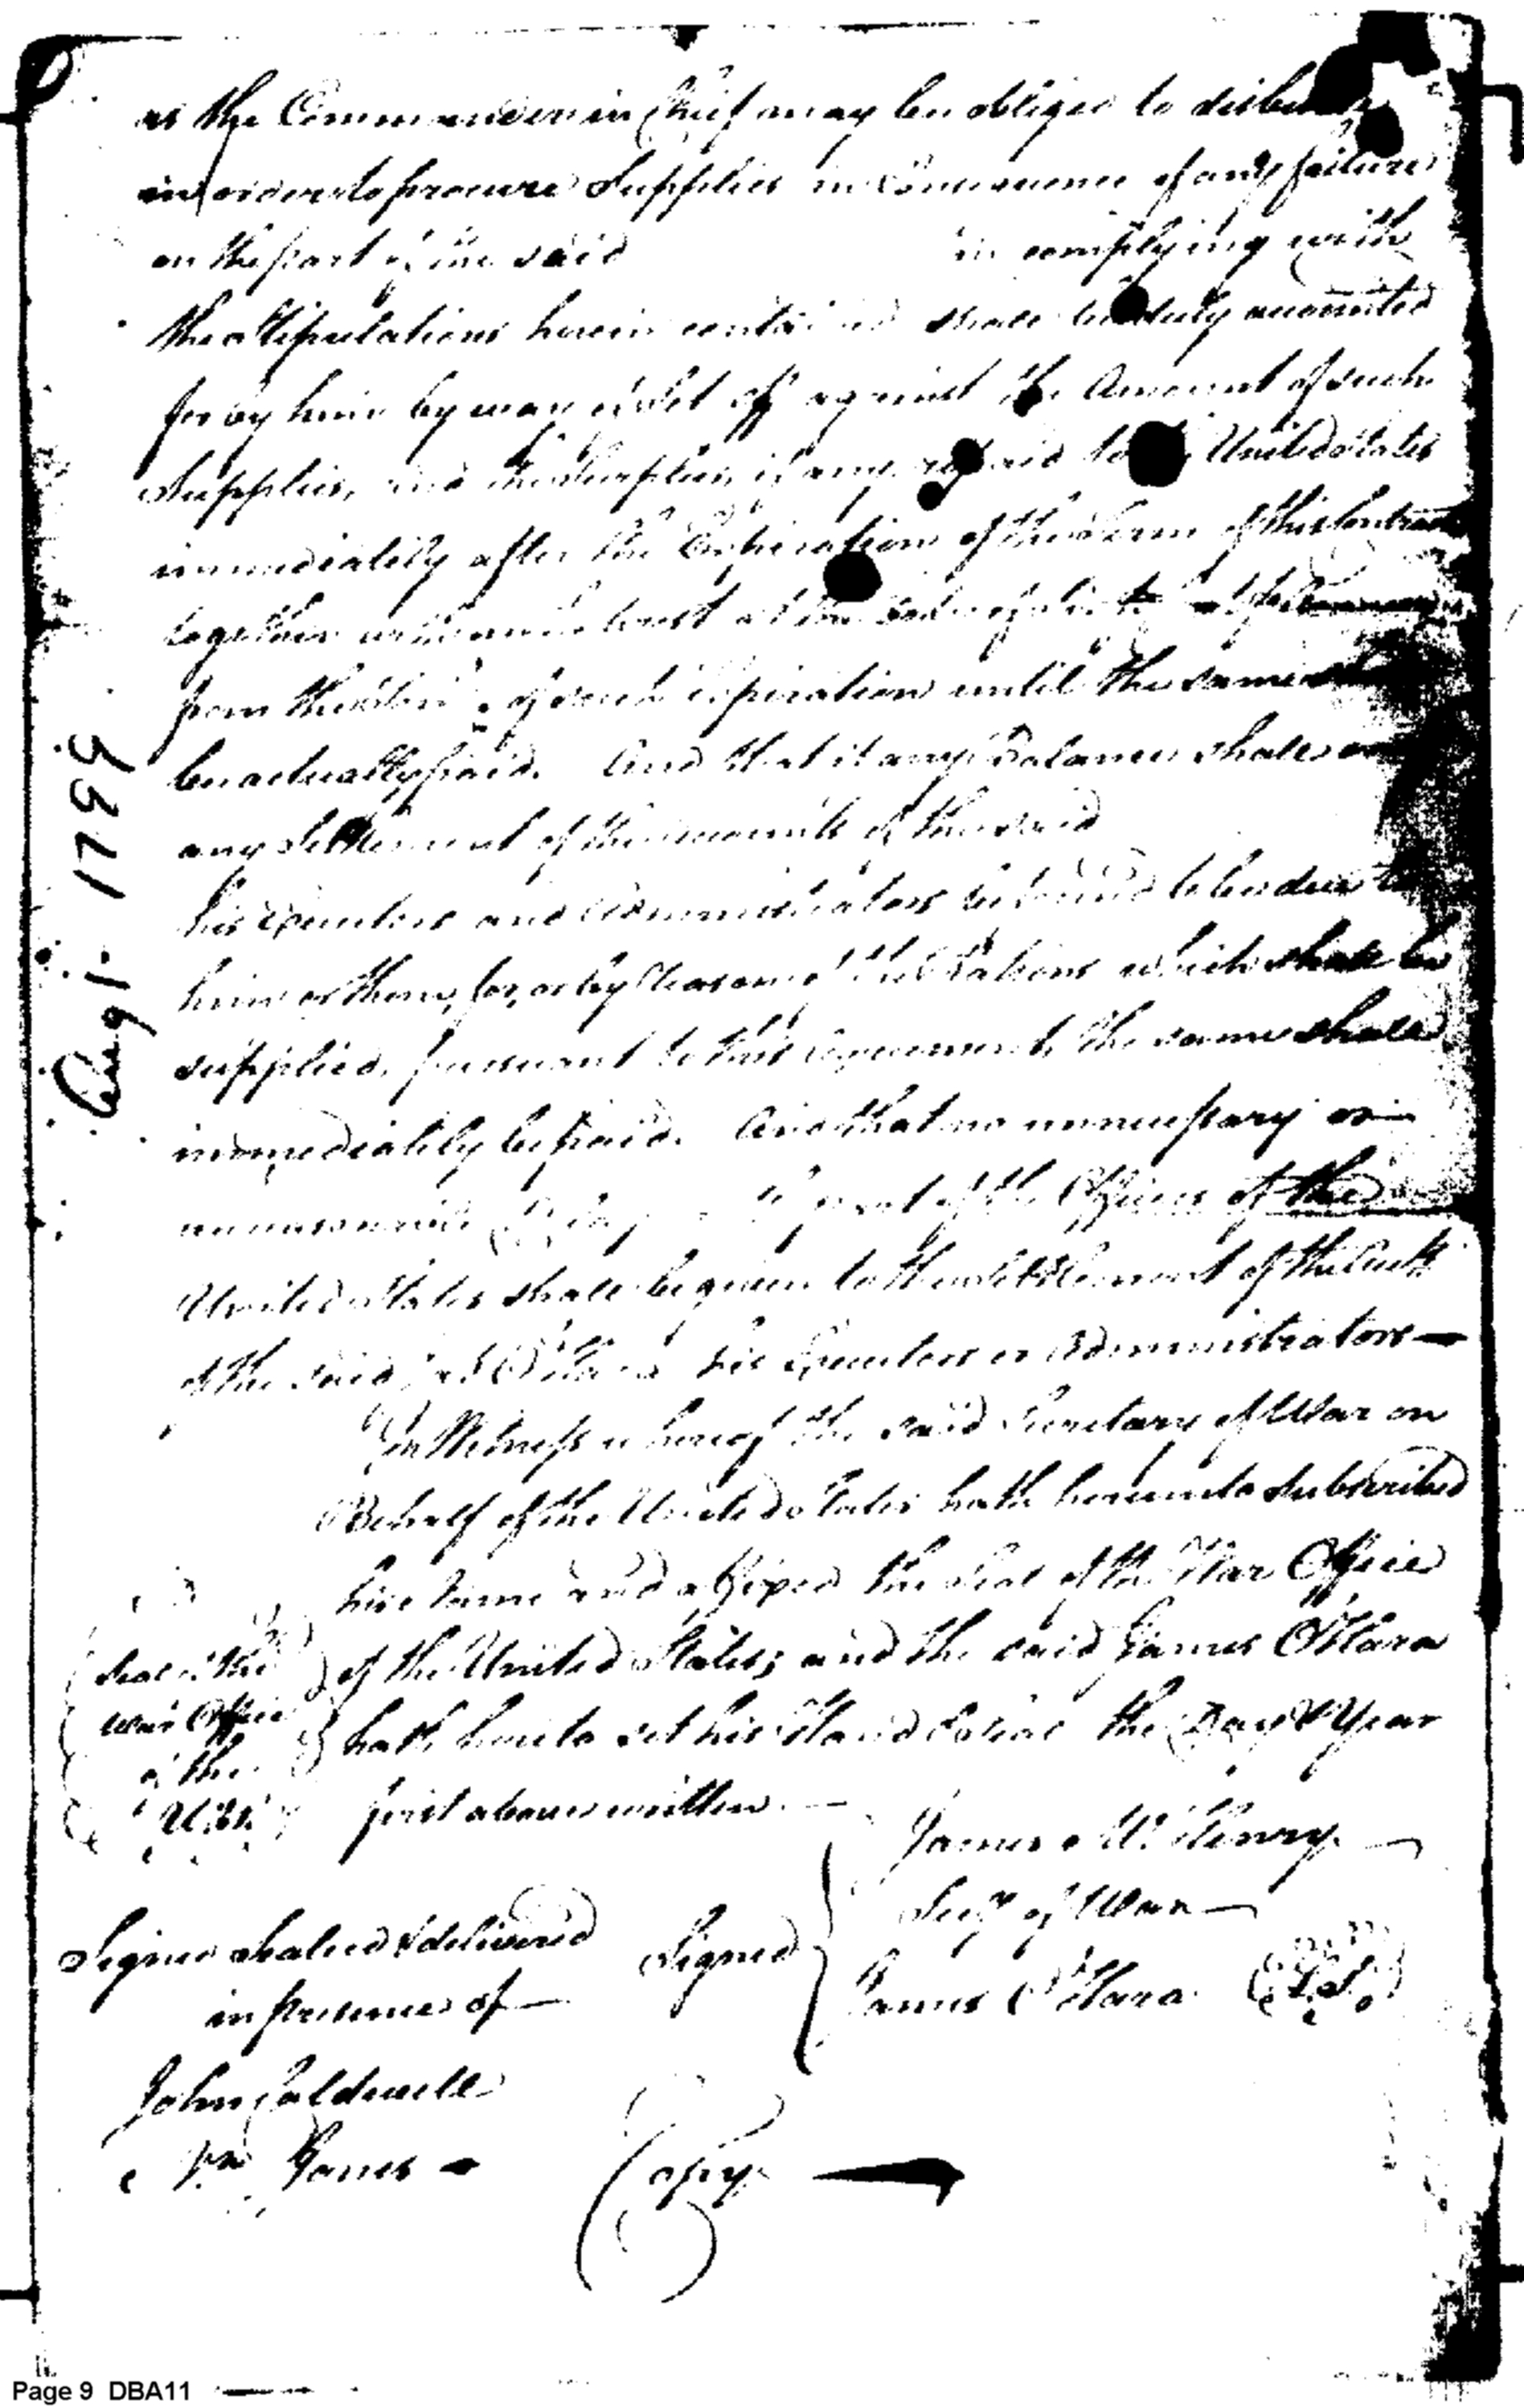 as the Commander in Chief may be obliged to disburse
in order to procure Supplies in Consequence of any failure
on the part of the said in complying with
the Stipulations herein contained shall be duly accounted
for by him by way of Set off against the Amount of such
Supplies, and the Surplus, if any, repaid to United States
immediately after the Expiration of the Term of this Contract
together with an Interest at the
from the of such expiration until the same
be actually paid. And that if any Balance shall on
any Settlement of the accounts of the said
his Executors and Administrators be found to be due to
him or them, for, or by Reason of the Rations which shall be
supplied, pursuant to this Agreement, the same shall
immediately be paid. And that no unnecessary or
unreasonable Delay part of the Officers of the
United States shall be given to the Settlement of the Accts
of the said Jas O'Hara his Executors or Administrators —
In Witness whereof the said Secretary of War on
Behalf of the United States hath hereunto subscribed
his Name and affixed the Seal of the War Office
of the United States; and the said James O'Hara
hath hereto set his Hand & Seal the Day & Year
first above written. —
Seal of the
War Office
of the
U. Sts
James McHenry —
Secy of War —
Signed Sealed & delivered
in presence of —
Signed
James O'Hara (L.S.)
John Caldwell
Jones —
Copy
Augt. 1796
Page 9 DBA11